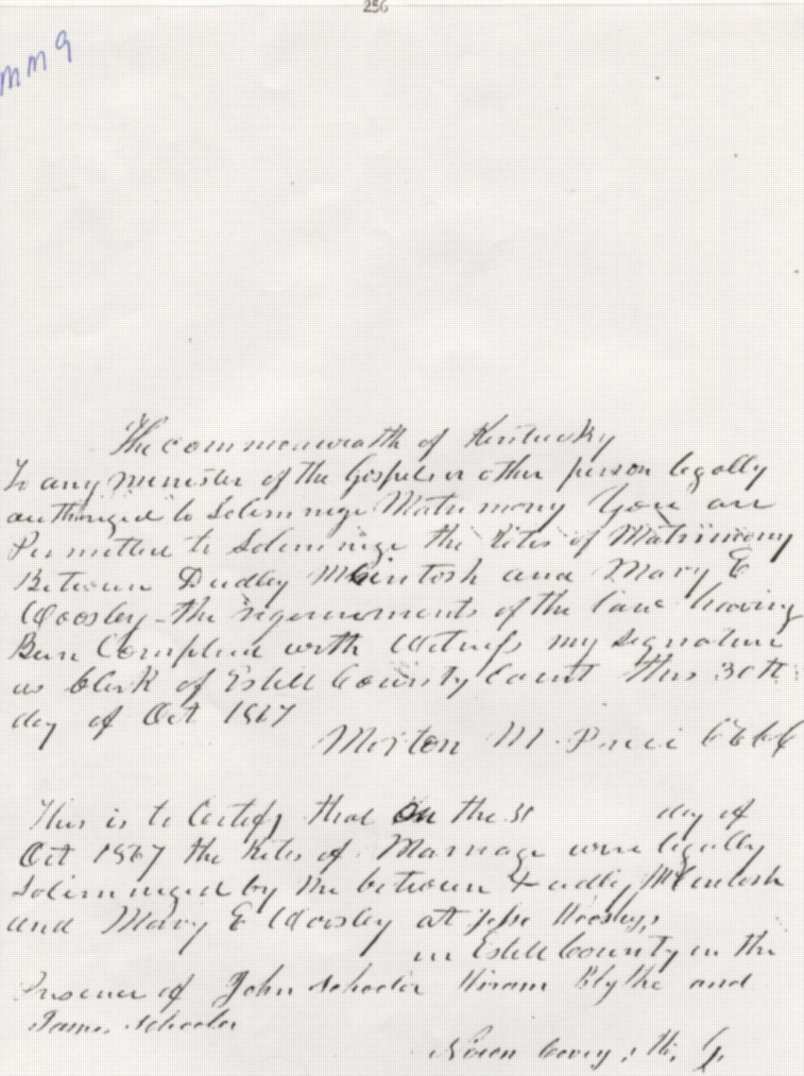 256
mm9
The commonwealth of Kentucky
To any minister of the Gospel or other person legally
authorized to Solemnize Matrimony You are
Permitted to Solemnize the Rites of Matrimony
Between Dudley McIntosh and Mary E
Woosley the requirements of the law having
Been Complied with Witness my signature
as Clerk of Estill County Court this 30th
day of Oct 1867
Morton M. Price
This is to Certify that On the 31 day of
Oct 1867 the Rites of Marriage were legally
Solemnized by me between Dudley McIntosh
and Mary E Woosley at Jesse Woosley,s
in Estill County in the
Presence of John Schooler Hiram Blythe and
James Schooler
Covey